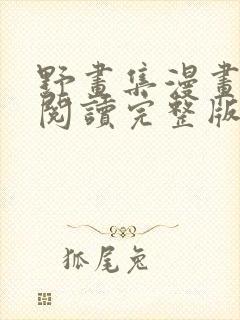 野畫集漫畫
閱讀完整版
狐尾兔